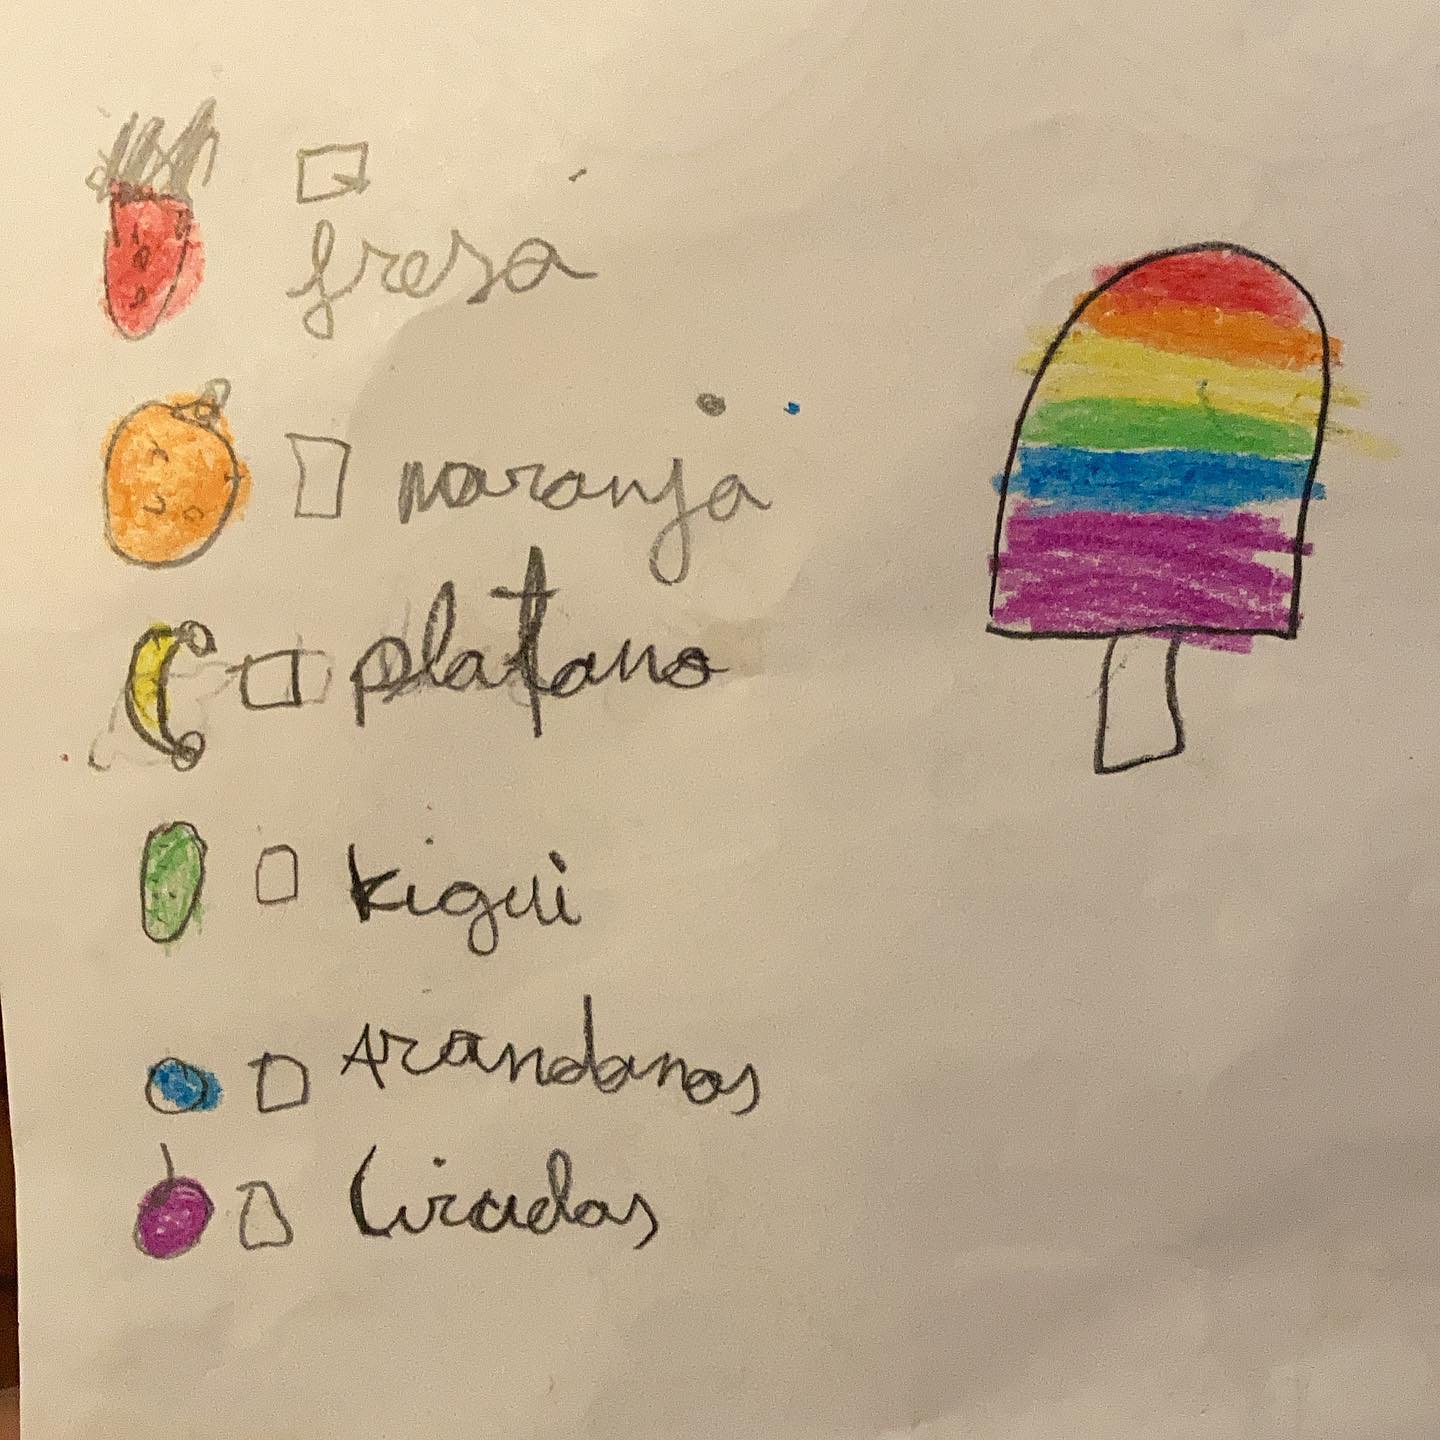 fresa
naranja
platano
kigui
Arandanos
Ciruelas